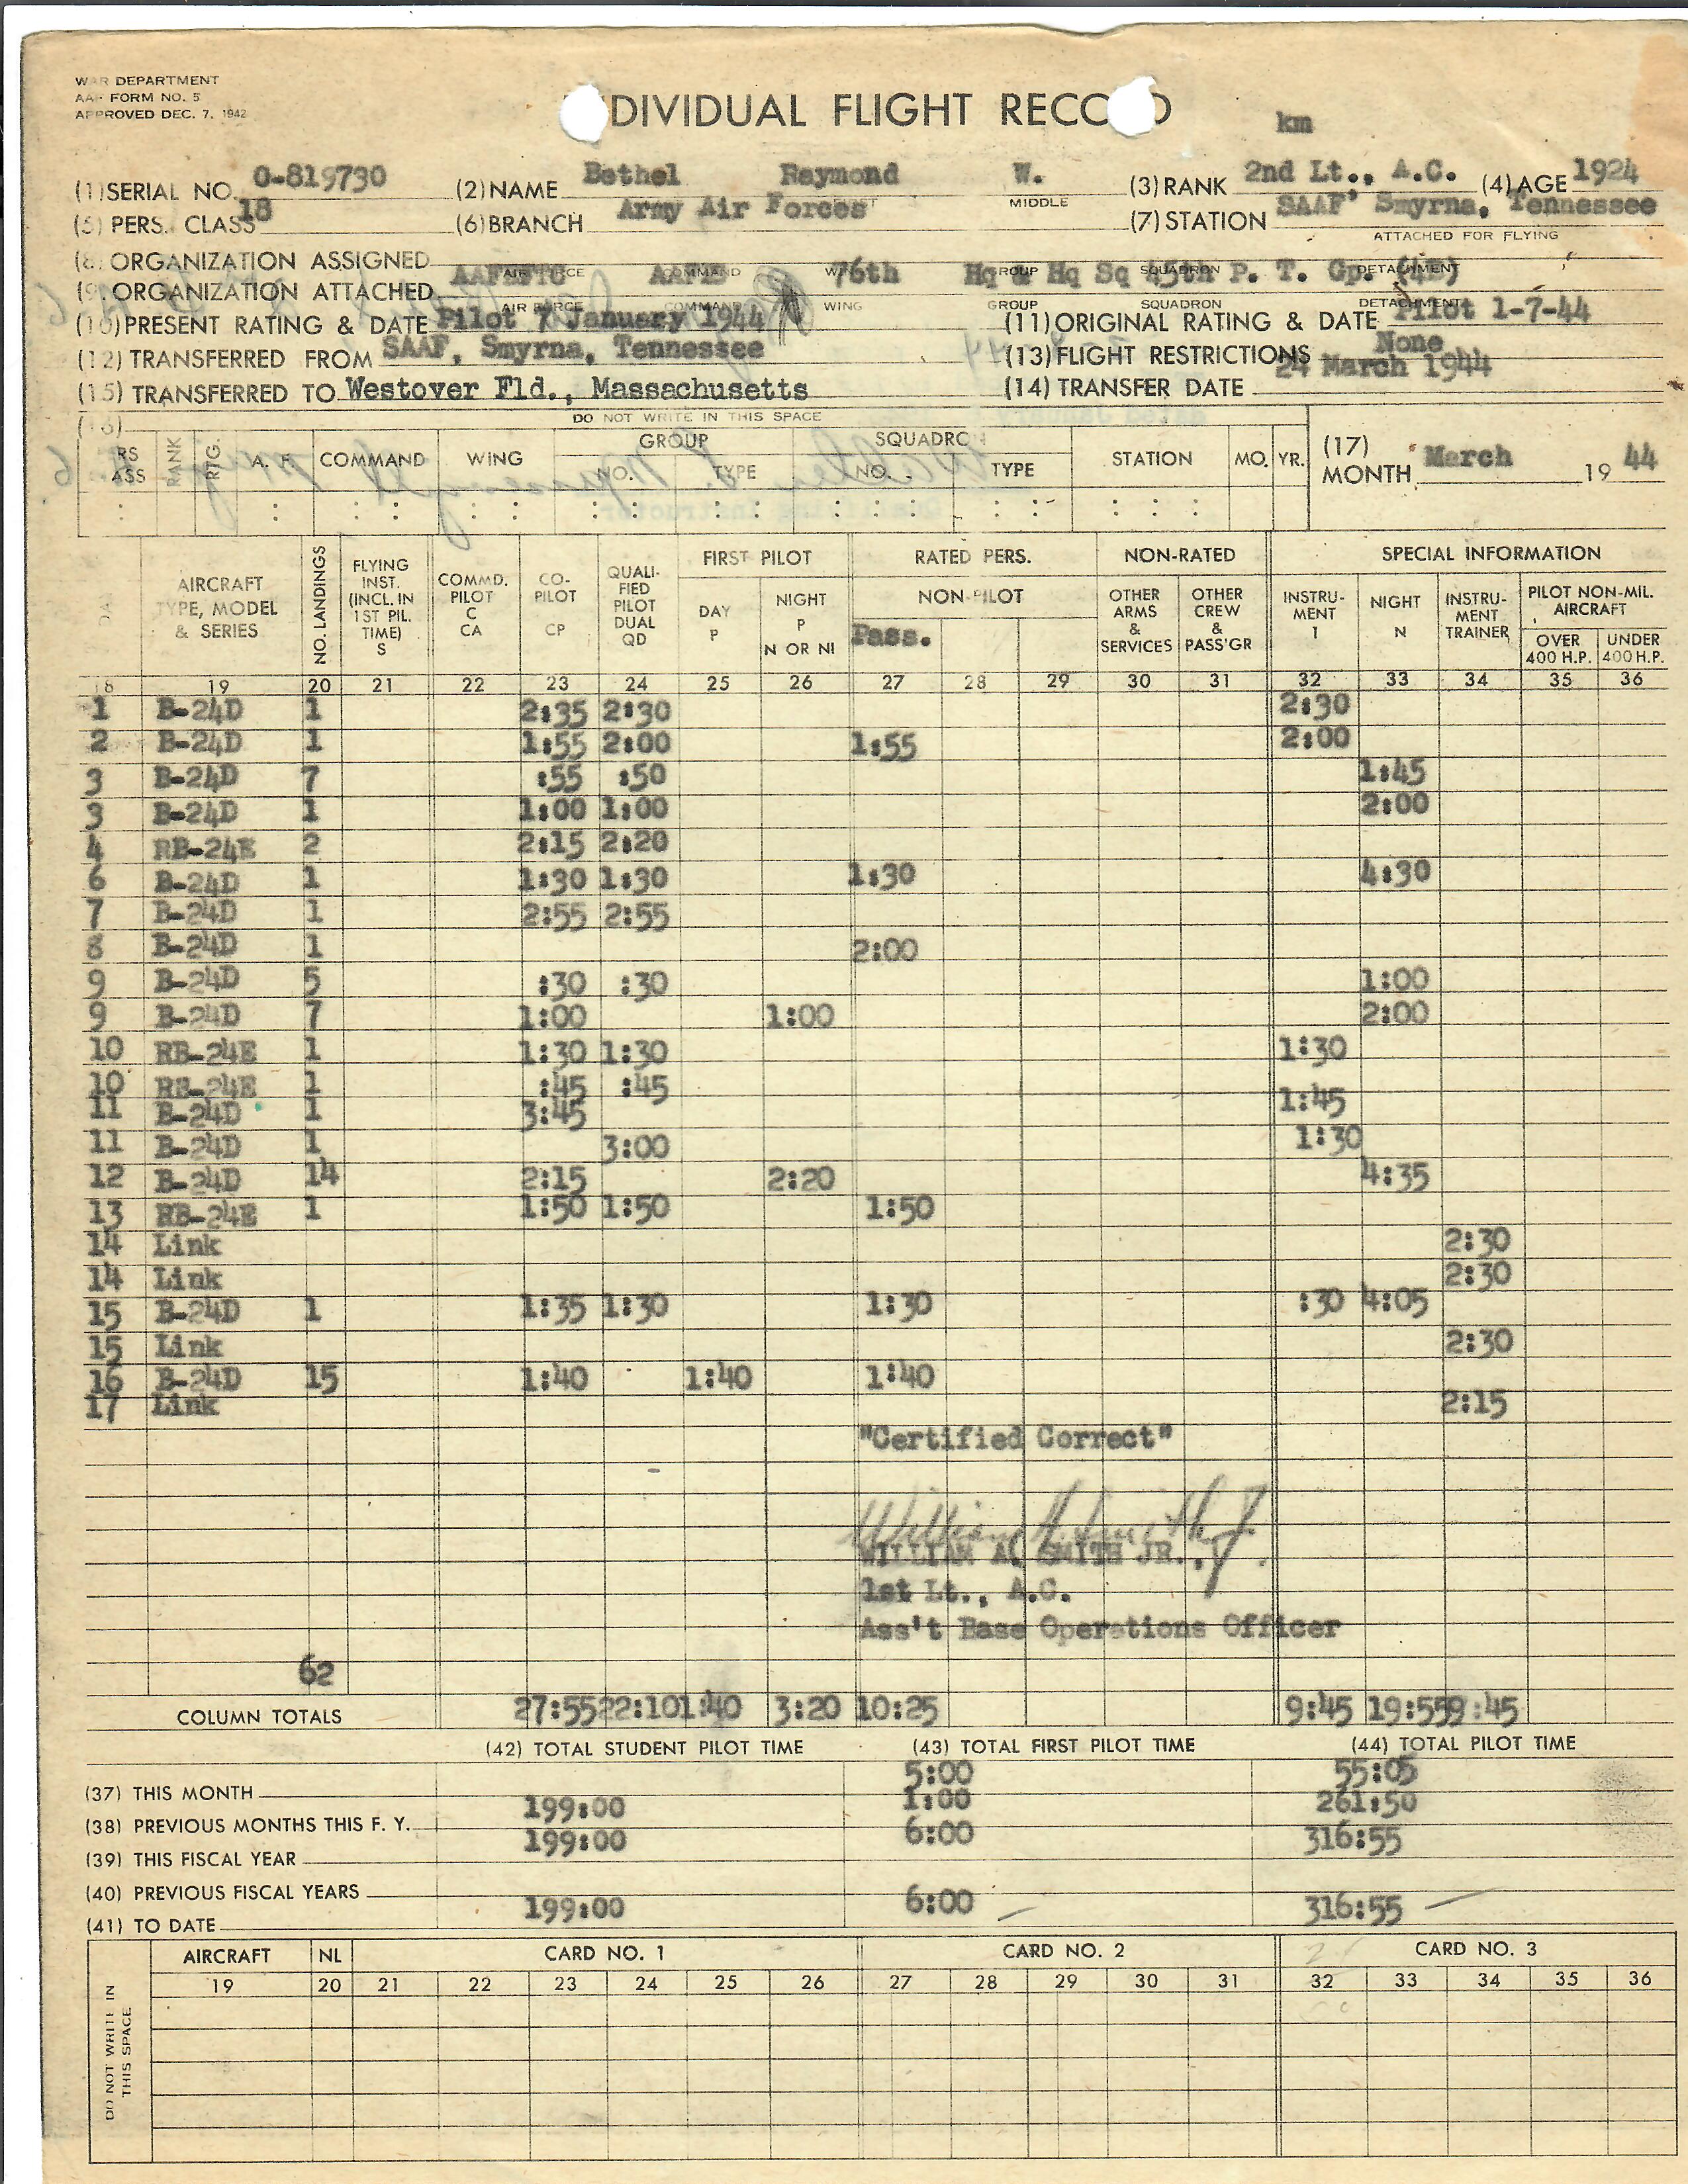 WAR DEPARTMENT
AAF FORM NO. 5
APPROVED DEC. 7, 1942
INDIVIDUAL FLIGHT RECORD
km
(1) SERIAL NO. O-819730 (2) NAME Bethel Raymond W. (3) RANK 2nd Lt., A.C. (4) AGE 1924
MIDDLE
(5) PERS. CLASS 18 (6) BRANCH Army Air Forces (7) STATION SAAF' Smyrna, Tennessee
ATTACHED FOR FLYING
(8) ORGANIZATION ASSIGNED AAFEFTC 76th Hq & Hq Sq 45th P. T. Gp. (4E)
AIR FORCE COMMAND WING GROUP SQUADRON DETACHMENT
(9) ORGANIZATION ATTACHED
AIR FORCE COMMAND WING GROUP SQUADRON DETACHMENT
(10) PRESENT RATING & DATE Pilot 7 January 1944 (11) ORIGINAL RATING & DATE Pilot 1-7-44
(12) TRANSFERRED FROM SAAF, Smyrna, Tennessee (13) FLIGHT RESTRICTIONS None
(15) TRANSFERRED TO Westover Fld., Massachusetts (14) TRANSFER DATE 24 March 1944
(16) DO NOT WRITE IN THIS SPACE
RS ASS RANK RTG. A. F. COMMAND WING GROUP NO. TYPE SQUADRON NO. TYPE STATION MO. YR.
(17) MONTH March 19 44
DAY AIRCRAFT TYPE, MODEL & SERIES NO. LANDINGS FLYING INST. (INCL. IN 1ST PIL. TIME) S COMMD. PILOT C CA CO-PILOT CP QUALI-FIED PILOT DUAL QD FIRST PILOT DAY P NIGHT P N OR NI RATED PERS. NON-PILOT Pass. NON-RATED OTHER ARMS & SERVICES OTHER CREW & PASS'GR SPECIAL INFORMATION INSTRU-MENT I NIGHT N INSTRU-MENT TRAINER PILOT NON-MIL. AIRCRAFT OVER 400 H.P. UNDER 400 H.P.
18 19 20 21 22 23 24 25 26 27 28 29 30 31 32 33 34 35 36
1 B-24D 1 2:35 2:30 2:30
2 B-24D 1 1:55 2:00 1:55 2:00
3 B-24D 7 :55 :50 1:45
3 B-24D 1 1:00 1:00 2:00
4 RB-24E 2 2:15 2:20
6 B-24D 1 1:30 1:30 1:30 4:30
7 B-24D 1 2:55 2:55
8 B-24D 1 2:00
9 B-24D 5 :30 :30 1:00
9 B-24D 7 1:00 1:00 2:00
10 RB-24E 1 1:30 1:30 1:30
10 RB-24E 1 :45 :45
11 B-24D 1 3:45 1:45
11 B-24D 1 3:00 1:30
12 B-24D 14 2:15 2:20 4:35
13 RB-24E 1 1:50 1:50 1:50
14 Link 2:30
14 Link 2:30
15 B-24D 1 1:35 1:30 1:30 :30 4:05
15 Link 2:30
16 B-24D 15 1:40 1:40 1:40
17 Link 2:15
"Certified Correct"
William A. Smith Jr.
WILLIAM A. SMITH JR.,
1st Lt., A.C.
Ass't Base Operations Officer
62
COLUMN TOTALS 27:55 22:10 1:40 3:20 10:25 9:45 19:55 9:45
(42) TOTAL STUDENT PILOT TIME (43) TOTAL FIRST PILOT TIME (44) TOTAL PILOT TIME
(37) THIS MONTH 5:00 55:05
(38) PREVIOUS MONTHS THIS F. Y. 199:00 1:00 261:50
(39) THIS FISCAL YEAR 199:00 6:00 316:55
(40) PREVIOUS FISCAL YEARS
(41) TO DATE 199:00 6:00 316:55
DO NOT WRITE IN THIS SPACE
AIRCRAFT NL CARD NO. 1 CARD NO. 2 CARD NO. 3
19 20 21 22 23 24 25 26 27 28 29 30 31 32 33 34 35 36